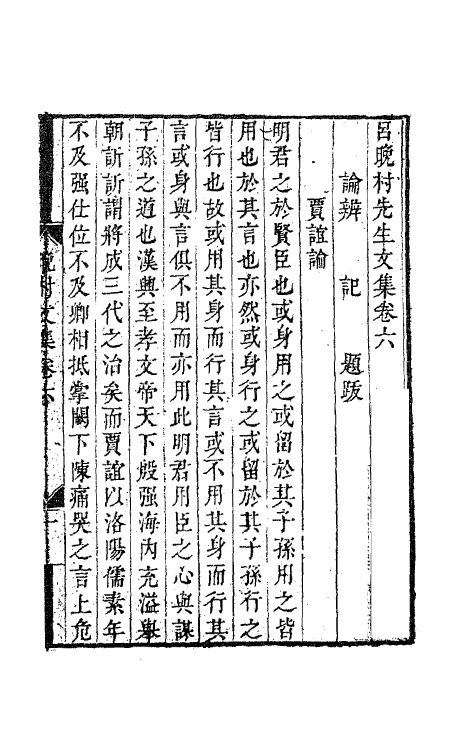 呂晚村先生文集卷六
論辨　記　題跋
賈誼論
明君之於賢臣也或身用之或留於其子孫用之皆
用也於其言也亦然或身行之或留於其子孫行之
皆行也故或用其身而行其言或不用其身而行其
言或身與言俱不用而亦用此明君用臣之心與謀
子孫之道也漢興至孝文帝天下殷强海內充溢舉
朝訢訢謂將成三代之治矣而賈誼以洛陽儒素年
不及强仕位不及卿相抵掌闕下陳痛哭之言上危
晚村文集卷六
一